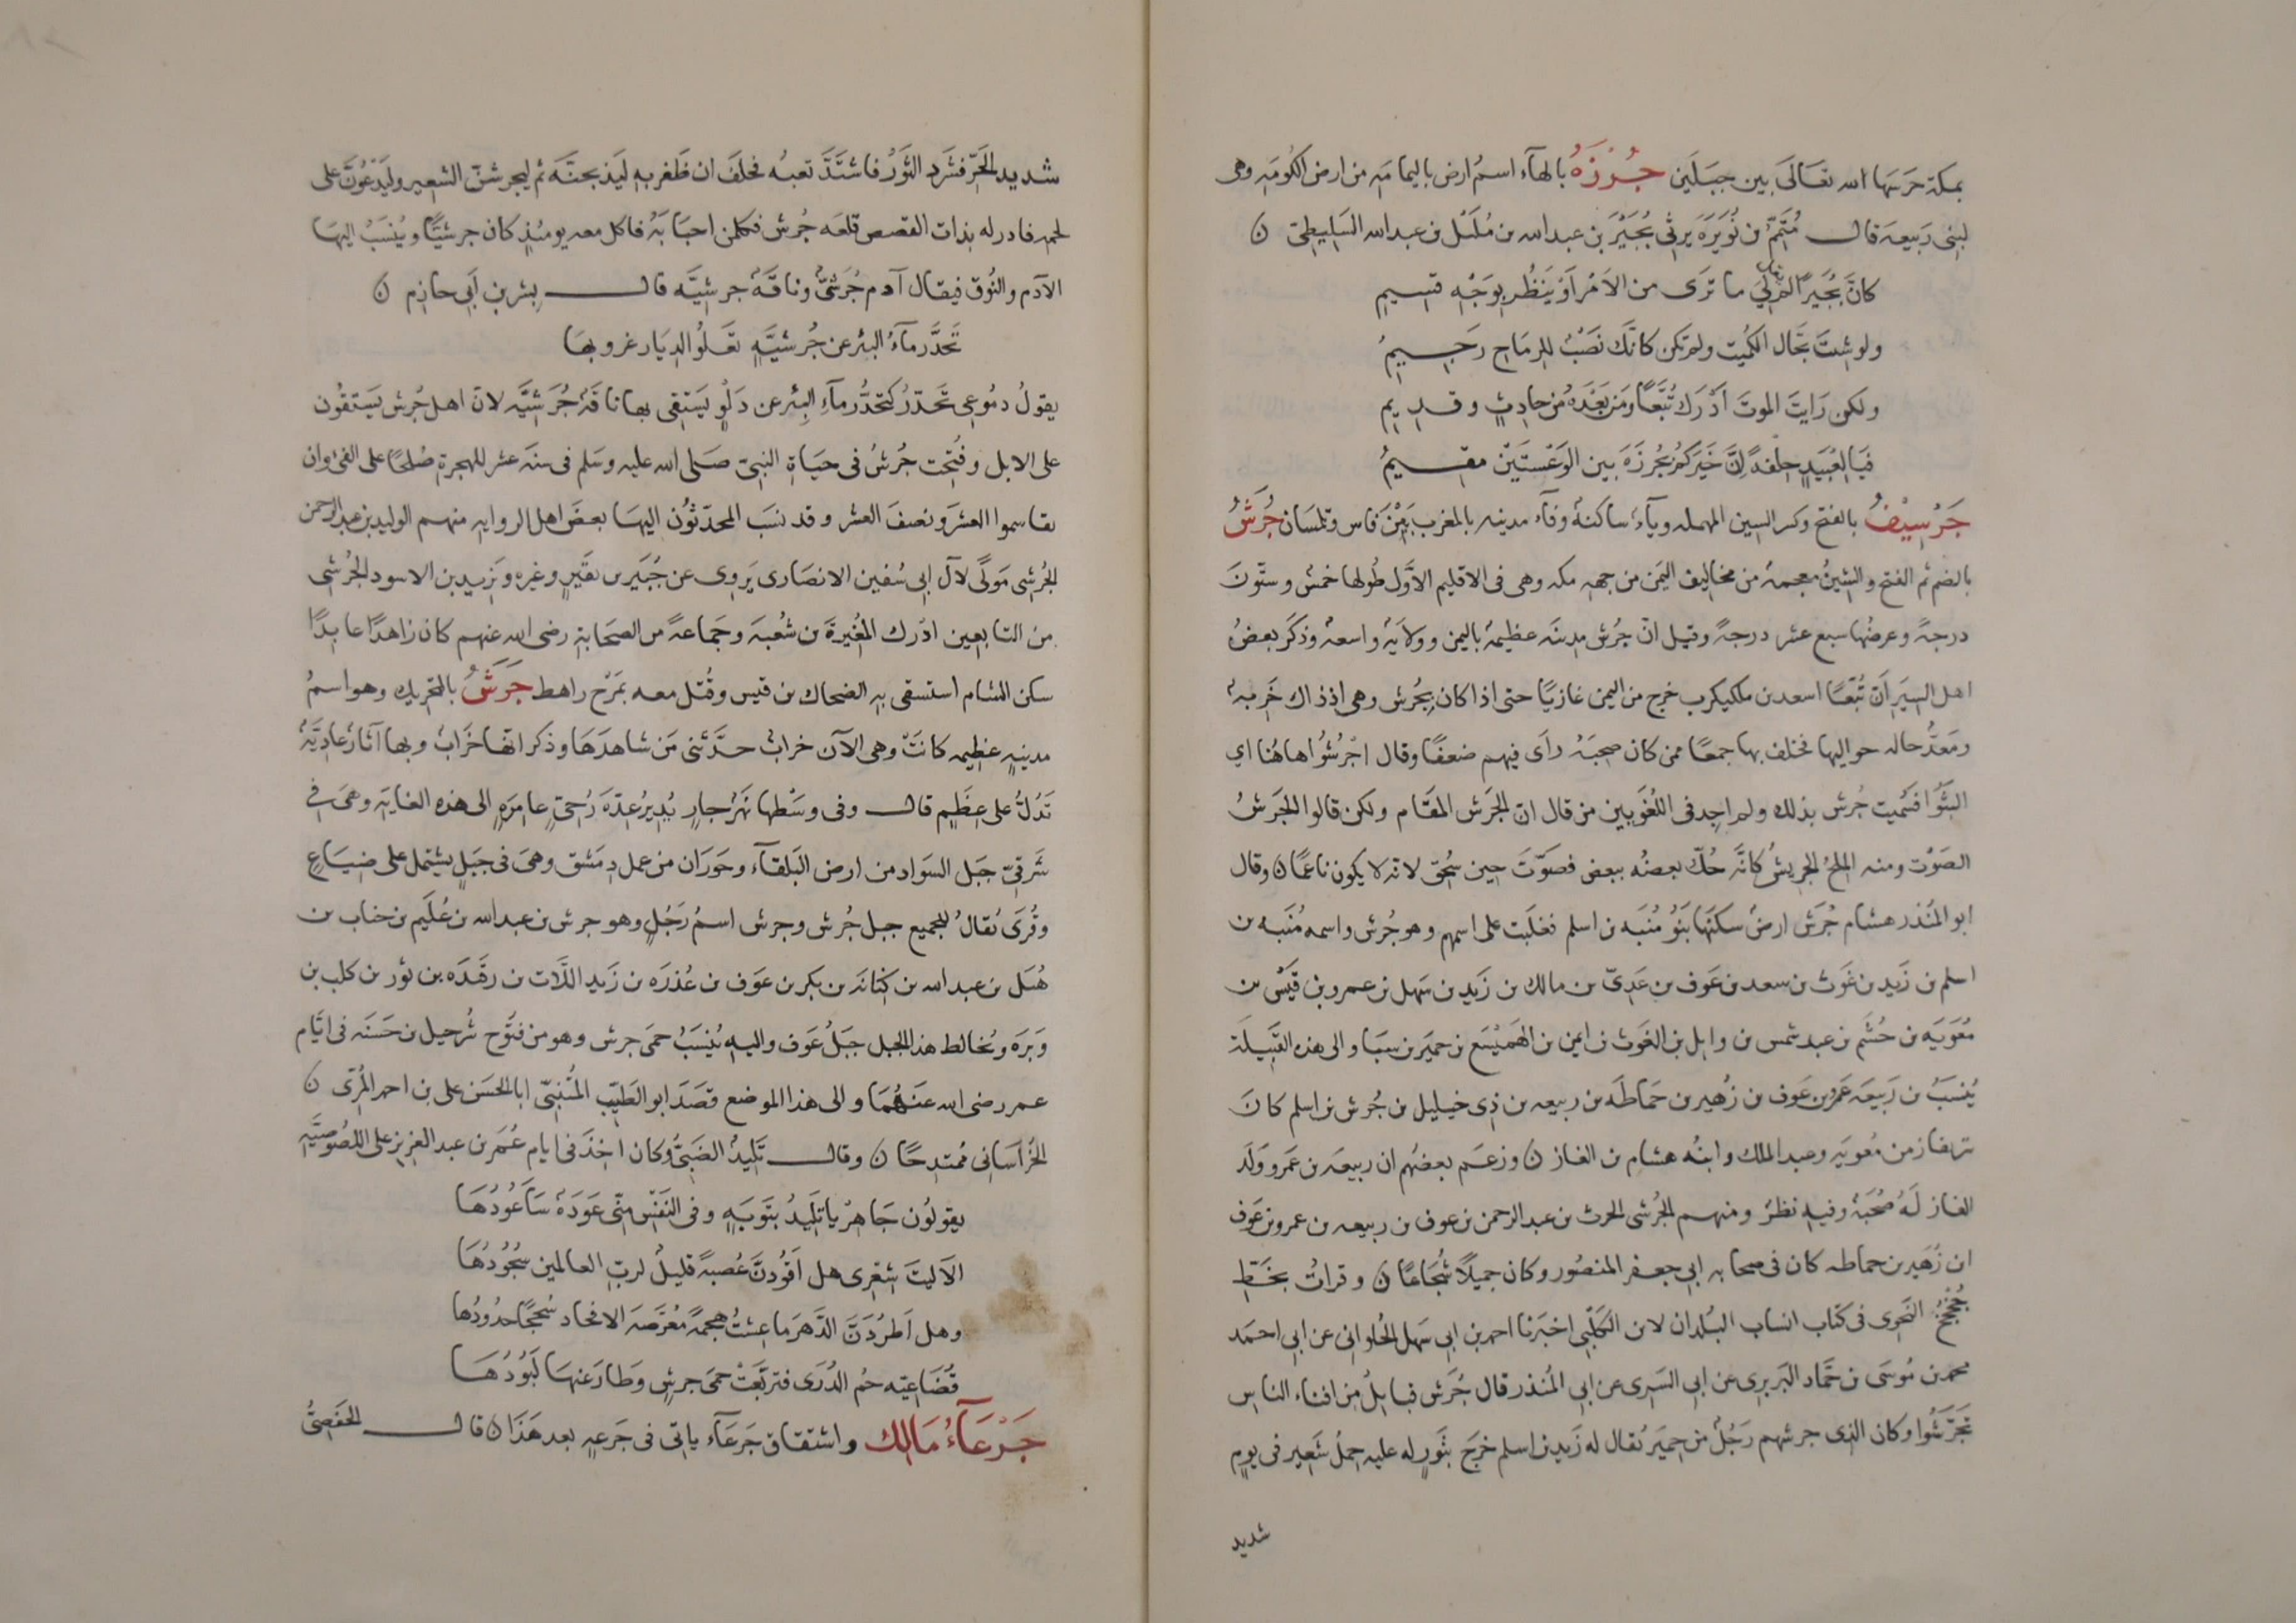 بمكة حرسها الله تعالى بين جبلين جُرْزَةُ بالهاء اسمُ ارض باليمامه من ارض الكومه وهى
لبنى ربيعه قال مُتَمِّم بن نُوَيرَه يرثى بُجَيْرَ بن عبد الله بن مُلَيل بن عبد الله السَليطِىّ ن
كانَّ بُجَيرًا لم يقل لي ما ترى من الاَمْر اَوْ يَنظُر بوَجْهٍ قسيم
ولو شئتَ نجّاك الكُميت ولم تكن كانّكَ نَصْبٌ للرماح رَجيمُ
ولكن رَايتَ الموتَ اَدْرَك تُبَّعًا ومَن بَعْدَهُ من حادِثٍ وقديم
فيا لعُبَيدٍ حِلفةً اِنَّ خَيرَكم بجُرزَةَ بين الوَعْسَتَيْن مقيمُ
جَرْسِيْفُ بالفتح وكسر السين المهمله وياءٌ ساكنةٌ وفاء مدينه بالمغرب بَيْنَ فاس وتلمسان جُرَشُ
بالضم ثم الفتح والشينُ معجمة من مخاليف اليَمن من جهه مكه وهى فى الاقليم الاَوَّل طُولها خمسٌ وستّونَ
درجةً وعرضُها سبع عشر درجةً وقيل انّ جُرَش مدينَه عظيمةٌ باليمن وولاَيةٌ واسعةٌ وذكَر بعضُ
اهل السِيَر اَنّ تُبّعًا اسعد بن ملكيكرب خرج من اليمن غازيًا حتى اذا كان بِجُرش وهى اذ ذاك خَرِبه
ومَعدُّ حاله حواليها فخلف بها جمعًا ممن كان صحِبَهُ رأى فيهم ضعفًا وقال اجْرُشُوا هاهُنا اي
البثُوا فسُميت جُرش بذلك ولم اجِد فى اللُغَويين من قال ان الجَرش المقَام ولكن قالوا الجَرشُ
الصَوْت ومنه الملحُ الجريشُ كانَّه حُكّ بعضُه ببعض فصَوَّتَ حين سُحِق لانه لا يكون ناعمًا ن وقال
ابو المنذر هشام جُرَش ارضٌ سكنَها بَنُو مُنَبِّه بن اسلم فغلَبت على اسمهم وهو جُرش واسمه مُنَبِّه بن
اسلم بن زَيد بن غَوث بن سعد بن عَوف بن عَدِىّ بن مالك بن زَيد بن سَهل بن عمرو بن قَيْس بن
مُعٰوَيَه بن جُشَم بن عبد شمس بن وايل بن الغَوث بن ايمن بن الهَمَيْسَع بن حِميَر بن سَبَا والى هذه القَبيلَة
يُنسَبُ بن رَبيعَه عَمرو بن عَوف بن زُهير بن حَماطَه بن ربيعه بن ذِى خيليل بن جُرش بن اسلم كان
شريفًا زمن مُعٰويَه وعبد الملك وابنُه هشام بن الغاز ن وزعَم بعضُهم ان ربيعه بن عَمرو وَلَدَ
الغاز لَهُ صُحْبَةٌ وفيه نظرٌ ومنهم الجُرشى الحرث بن عبد الرحمن بن عوف بن ربيعه بن عمرو بن عَوف
ابن زُهَير بن حماطه كان فى صحابه ابى جعفر المنصُور وكان جميلاً شُجَاعًا ن وقراتُ بخَطِّ
جُخْجُخ النحوى فى كتاب انساب البُلدان لابن الكَلبِّى اخبَرنا احمد بن ابى سَهل الحُلوانى عن ابى احمَد
محمد بن مُوسى بن حمَّاد البَربرى عن ابى السَرى عن ابى المُنذر قال جُرَش قبايلُ من افناء الناس
تَجَرَّشُوا وكان الذِى جرشهم رَجُلٌ من حِميَر يُقال له زَيد بن اسلم خرَجَ بثَورٍ له عليه حِملُ شَعير فى يومٍ
شديد
شديد الحَرّ فشَرد الثَوْرُ فاشتَدَّ تعبُه فحلَفَ ان ظَفر به لَيَذبحنَّه ثم ليجرشنّ الشعير ولَيَدْعُوَنَّ على
لحمه فادركه بذات القصص قلعَه جُرش فكلّ من اجابَهُ فاكل معه يومئِذٍ كان جرشيًا ويُنسَبُ اليها
الآدم والنُوق فيقال آدم جُرَشىٌّ وناقَةٌ جرشيَّه قال بِشر بن اَبى خازِم ن
تَحدَّر مآءُ البئر عن جُرشيَّةٍ تَعلُو الديَار غروبها
يقولُ دمُوعى تَحدّرُ كتحدُّر مآءِ البِئر عن دَلْوٍ يَستقى بها ناقَةٌ جُرَشيَّه لانّ اهل جُرش يَستقُون
على الابل وفُتِحت جُرشُ فى حيَاة النبىّ صلى الله عليه وسلم فى سنَه عشر للهجرة صُلحًا على الفئ وان
يقاسموا العشرَ ونصفَ العشر وقد نسَبَ المحدّثُون اليها بعضَ اهل الروايه منهم الوليد بن عبد الرحمن
الجُرشى مَولًى لآل ابى سُفين الانصارى يَروى عن جُبَير بن نفَير وغيره ويَزيد بن الاسود الجُرشى
من التابعين ادْرك المُغيرةَ بن شُعبَه وجمَاعةً من الصحَابة رضى الله عنهم كان زاهدًا عابدًا
سكن الشام استسقى به الضحاك بن قيس وقُتل معه بمَرْج راهط جَرَشُ بالتحريك وهو اسمُ
مدينهٍ عظيمه كانَتْ وهى الآن خرابٌ حدَّثنى مَن شاهدَهَا وذكر انّها خَرابٌ وبها آثارٌ عادِيَّةٌ
تَدُلُّ على عِظَمٍ قال وفى وسْطها نَهرٌ جارٍ يُدِيرُ عِدّةَ رُحِىٍّ عامِرَه الى هذه الغايَه وهىَ فى
شَرقىّ جَبَل السَواد من ارض البَلقآء وحَورَان من عمل دِمَشق وهىَ فى جَبلٍ يشتمل على ضياعٍ
وقُرَى يُقالُ للجميع جبل جُرش وجرش اسمُ رَجُلٍ وهو جرش بن عبد الله بن عُلَيم بن جناب بن
هُبَل بن عبد الله بن كنانَه بن بكر بن عوف بن عُذرَه بن زَيد اللّات بن رفَدَه بن ثور بن كلب بن
وَبَرَه ويُخالط هذا الجبل جَبَلُ عَوف واليه يُنسَبُ حمَى جرش وهو من فتُوح شُرحبيل بن حَسَنَه فى ايّام
عمر رضى الله عنهُمَا والى هذا الموضع قصَدَ ابو الطَيّب المُتَنبّى ابا الحسَن على بن احمد المُرّى ن
الخُرَاسَانى مُمتدِحًا ن وقال تَلِيدُ الضَبىُّ وكان اخِذَ فى ايام عُمَر بن عبد العزيز على اللصُوصيَّه
يقولوُن جَاهِرْ يا تَلِيدُ بتَوبَهٍ وفى النَفْس مِنّى عَودَةٌ سَاَعُودُهَا
الاَ ليتَ شعْرى هل اَقُودَنَّ عُصبةً قليلٌ لربِّ العالمين سُجُودُهَا
وهل اَطرُدَنَّ الدَّهرَ ما عِشتُ هجمةً مُعَرَّضَه الافخاد سُجحًا خدُودُها
قُضاعِيّه حُم الذُرَى فترَبَّعَتْ حمَى جرشٍ وطَار عَنها لَبُودُهَا
جَرْعَآءُ مَالِك واشتقاق جَرعَآء ياتى فى جَرعه بعد هَذا ن قال الحَفصِىُّ